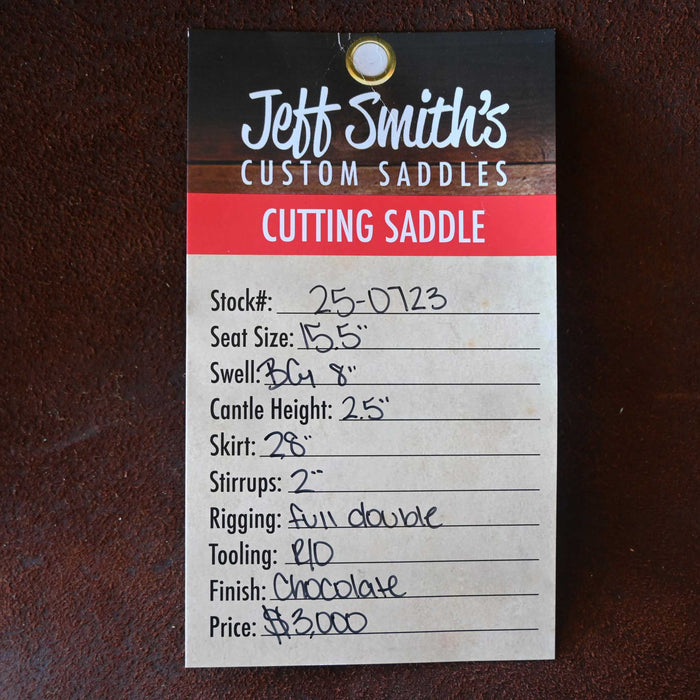 Jeff Smith's
CUSTOM SADDLES
CUTTING SADDLE
Stock#: 25-0723
Seat Size: 15.5"
Swell: BCy 8"
Cantle Height: 2.5"
Skirt: 28"
Stirrups: 2"
Rigging: full double
Tooling: R/O
Finish: Chocolate
Price: $3,000